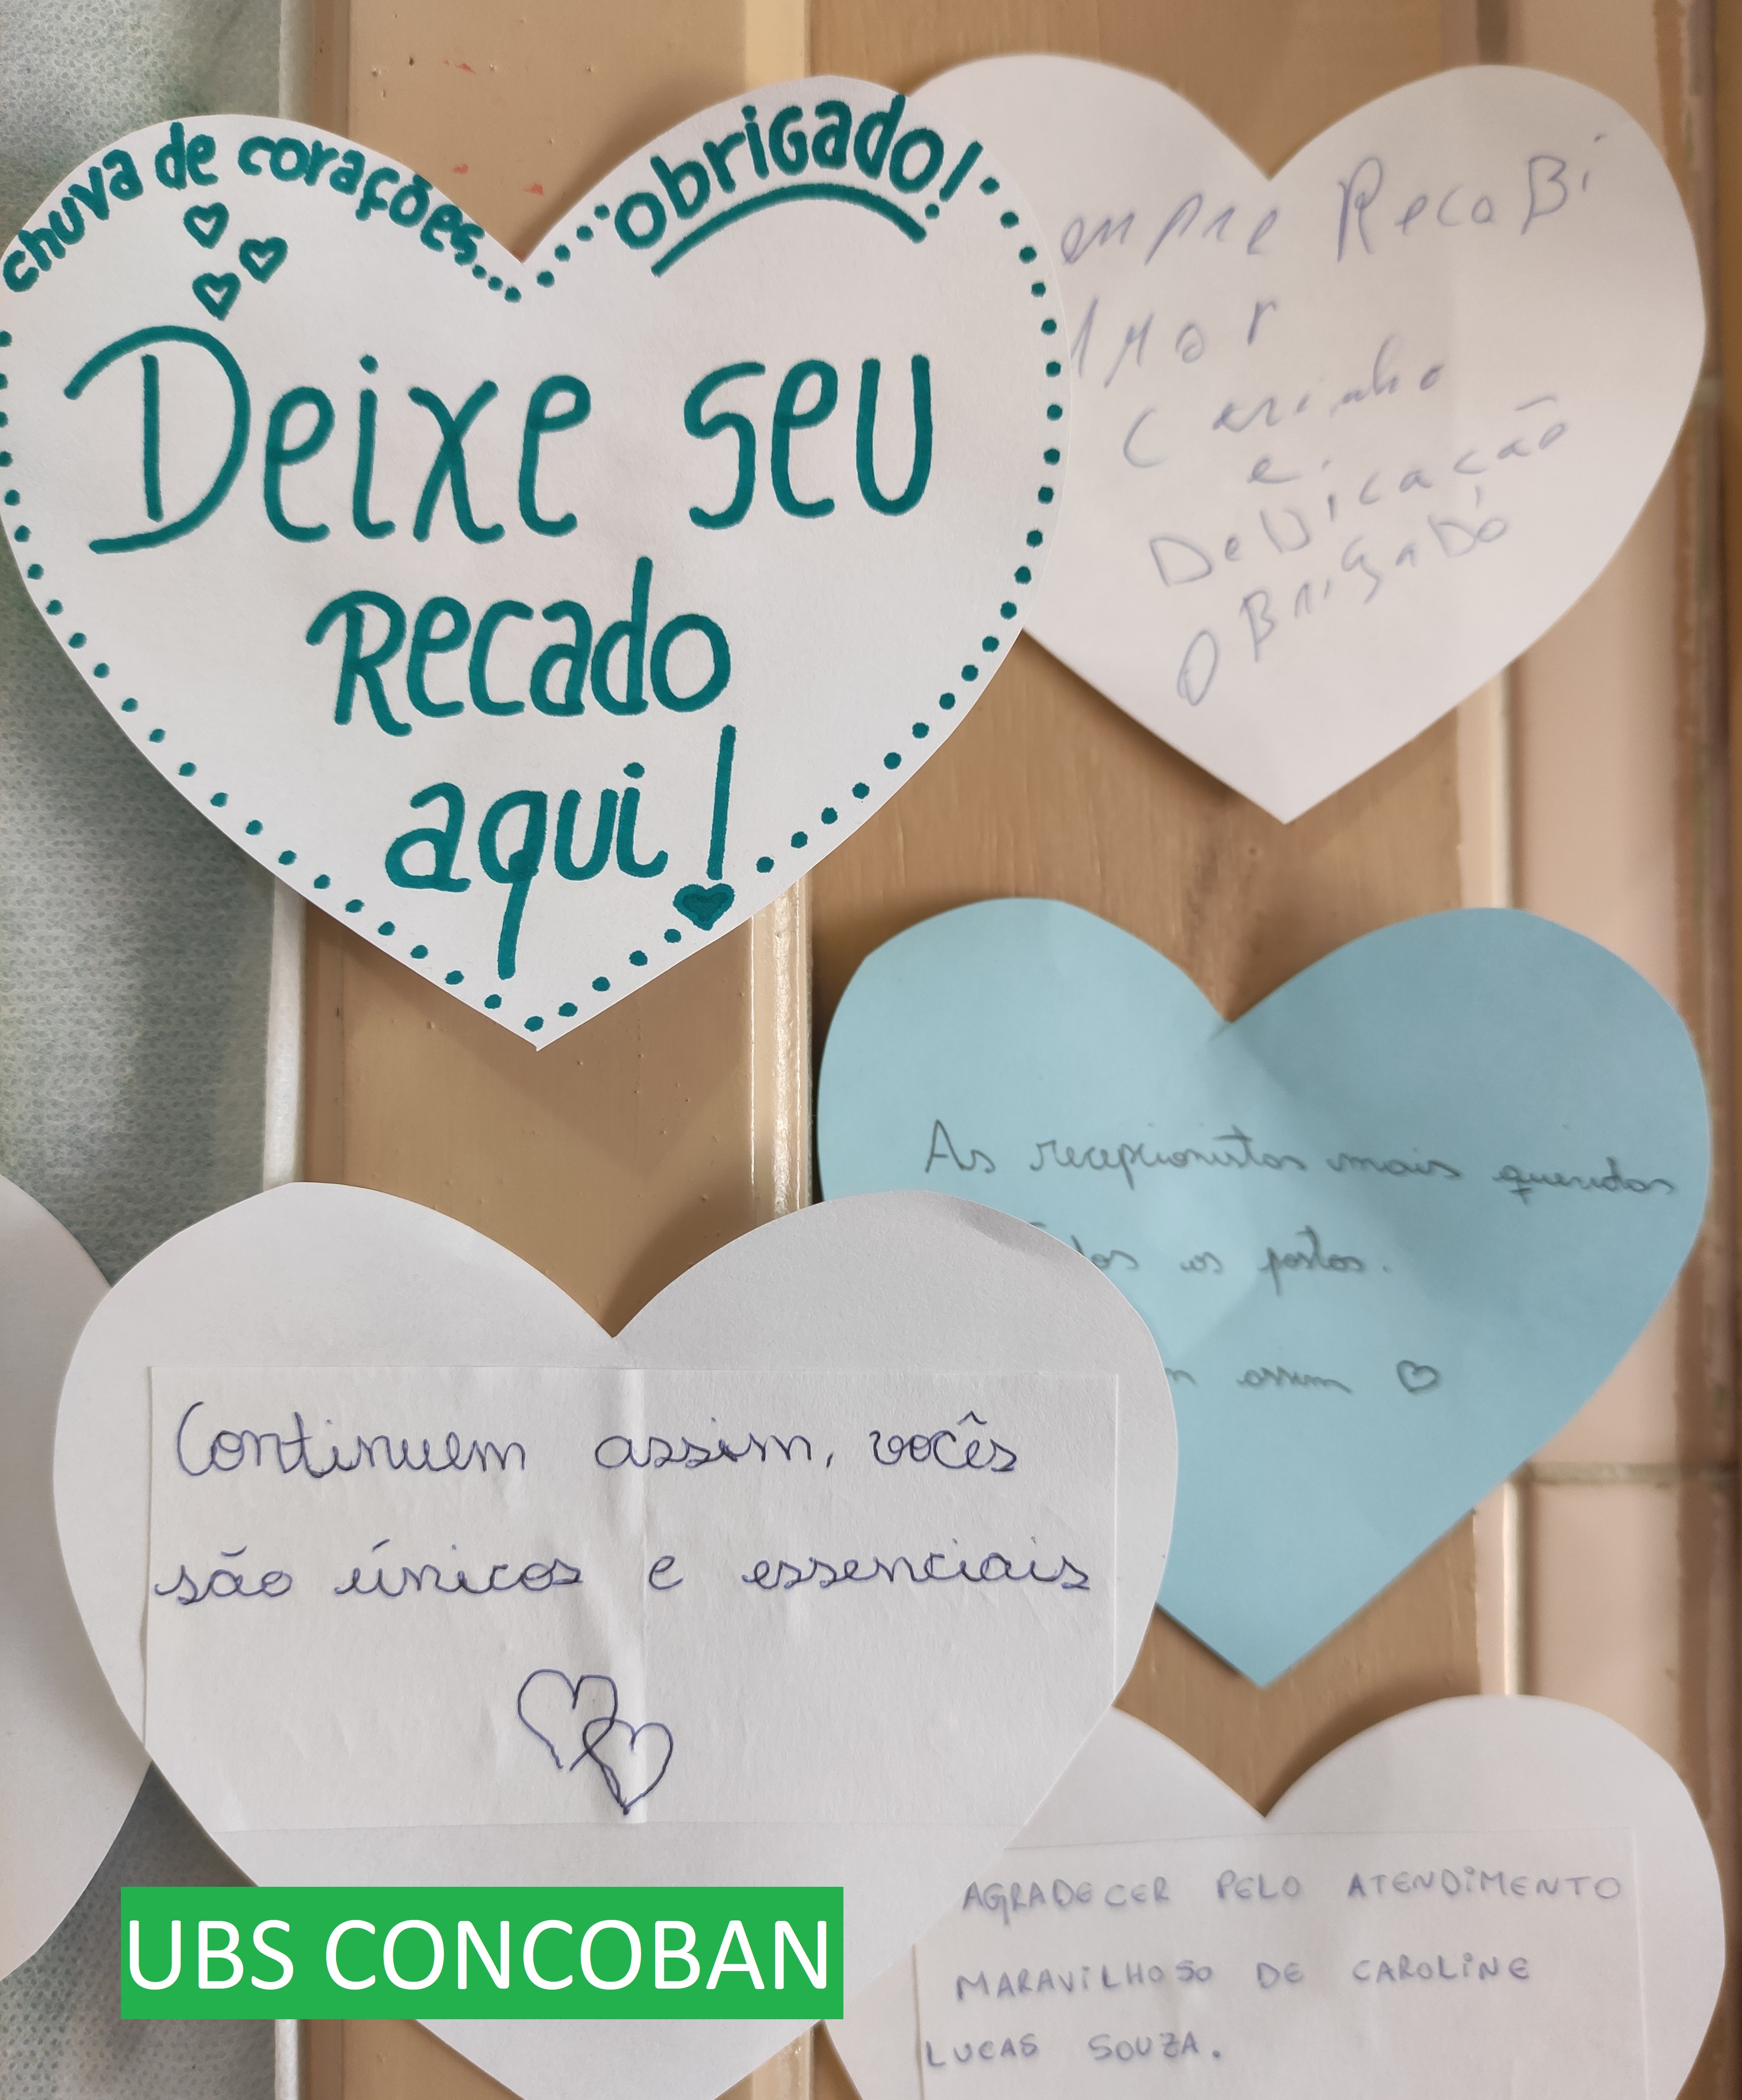 chuva de corações...
...obrigado!
Deixe seu
Recado
aqui!
RecoBi
Carinho
e
DeDicação
OBrigaDo
As recepcionistas mais queridas
os postos.
assim ♡
Continuem assim, vocês
são únicos e essenciais
AGRADECER PELO ATENDIMENTO
MARAVILHOSO DE CAROLINE
LUCAS SOUZA.
UBS CONCOBAN